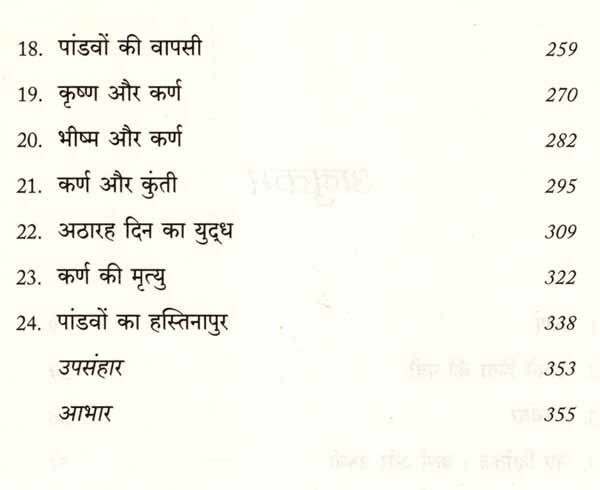 18. पांडवों की वापसी 259
19. कृष्ण और कर्ण 270
20. भीष्म और कर्ण 282
21. कर्ण और कुंती 295
22. अठारह दिन का युद्ध 309
23. कर्ण की मृत्यु 322
24. पांडवों का हस्तिनापुर 338
उपसंहार 353
आभार 355